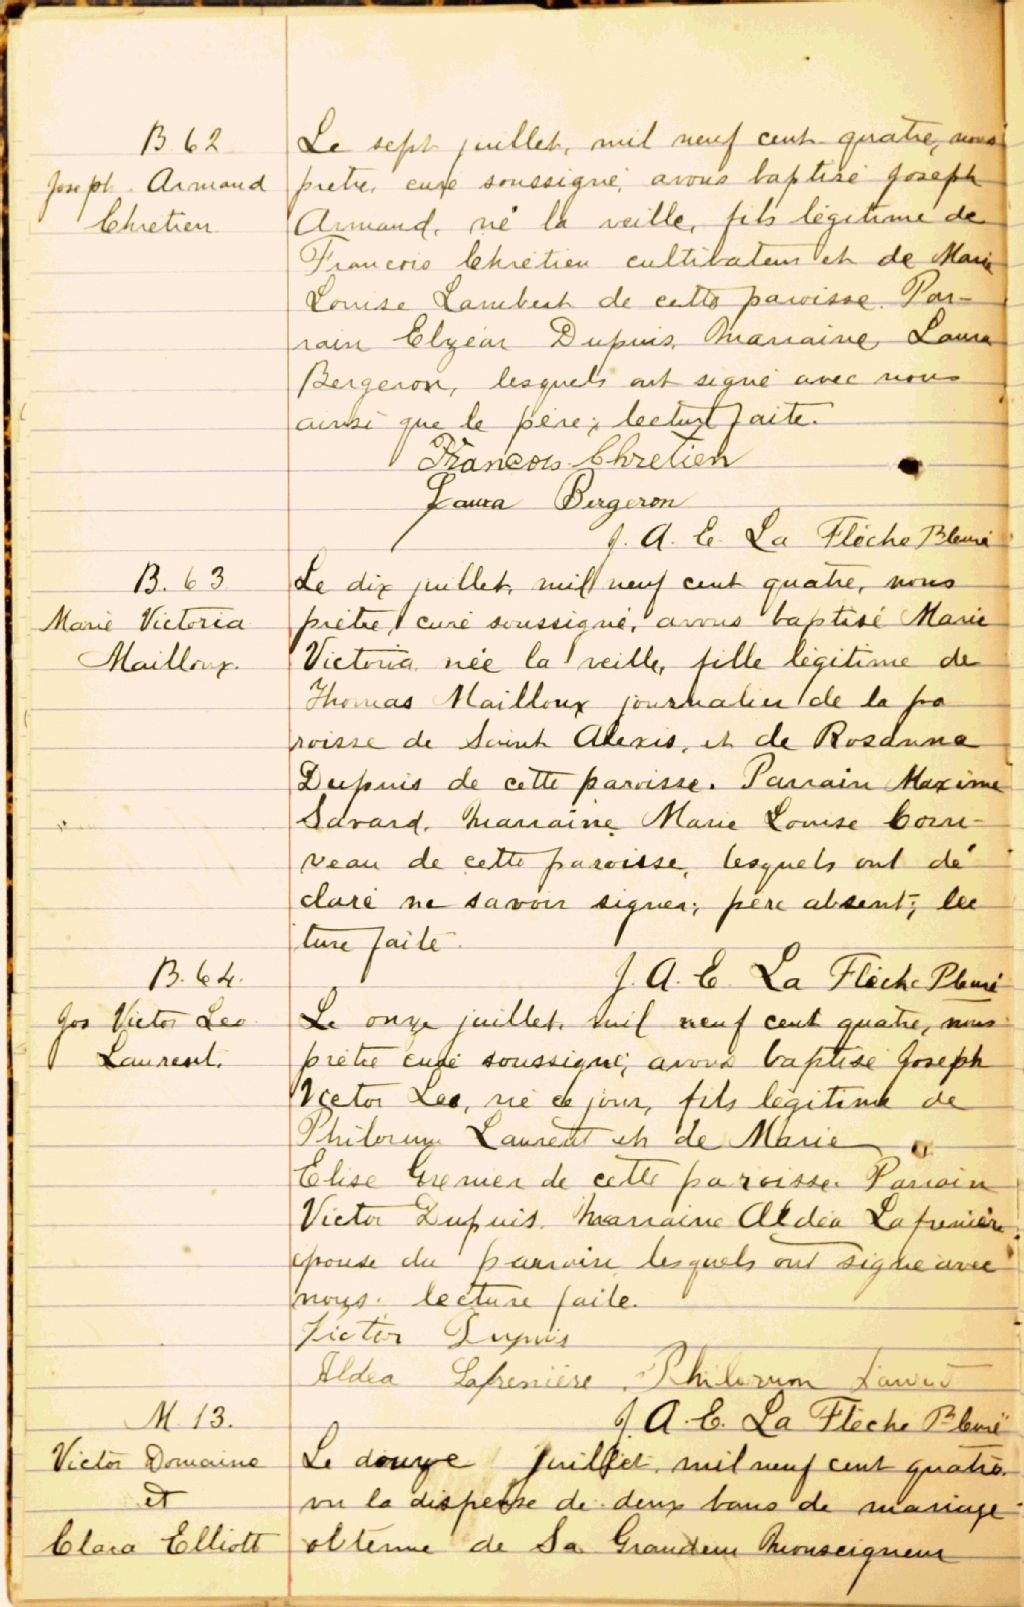 B. 62
Joseph Armand
Chretien
Le sept juillet, mil neuf cent quatre, nous
prêtre, curé soussigné, avons baptisé Joseph
Armand, né la veille, fils légitime de
Francois Chrétien cultivateur et de Marie
Louise Lambert de cette paroisse. Par-
rain Elzéar Dupuis, Marraine, Laura
Bergeron, lesquels ont signé avec nous
ainsi que le père; lecture faite.
Francois Chretien
Laura Bergeron
J. A. E. La Flèche Ptre curé
B. 63
Marie Victoria
Mailloux.
Le dix juillet, mil neuf cent quatre, nous
prêtre, curé soussigné, avons baptisé Marie
Victoria née la veille, fille légitime de
Thomas Mailloux journalier de la pa
roisse de Saint Alexis, et de Rosanna
Dupuis de cette paroisse. Parrain Maxime
Savard, Marraine Marie Louise Corri-
veau de cette paroisse, lesquels ont dé
claré ne savoir signer; père absent; lec
ture faite.
J. A. E. La Flèche Ptre curé
B. 64.
Jos Victor Leo
Laurent.
Le onze juillet, mil neuf cent quatre, nous
prêtre curé soussigné, avons baptisé Joseph
Victor Leo, né ce jour, fils légitime de
Philorum Laurent et de Marie
Elise Grenier de cette paroisse. Parrain
Victor Dupuis. Marraine Aldéa Lafrenière
épouse du parrain, lesquels ont signé avec
nous. lecture faite.
Victor Dupuis
Aldea Lafrenière Philorum
J. A. E. La Flèche Ptre curé
M. 13.
Victor Domaine
et
Clara Elliott
Le douze juillet, mil neuf cent quatre,
vu la dispense de deux bans de mariage
obtenue de Sa Grandeur Monseigneur